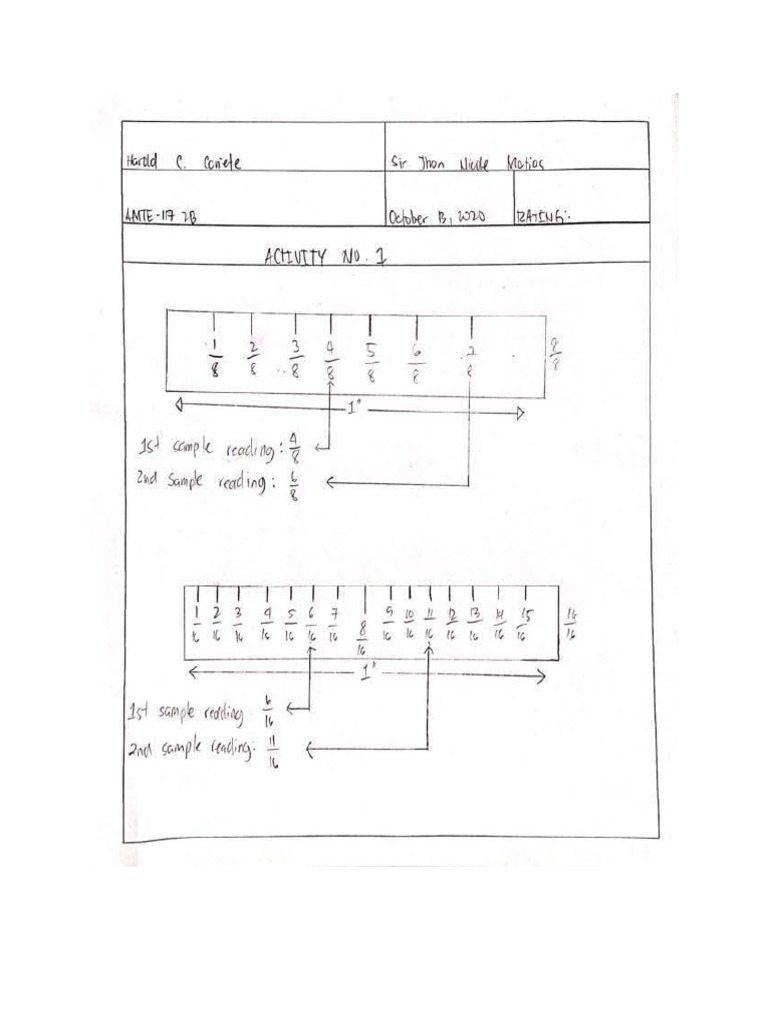 Harold C. Coniete
Sir Jhon Nicole Matias
AMTE-117 2B
October 13, 2020
RATING:
ACTIVITY NO. 1
1/8 2/8 3/8 4/8 5/8 6/8 7/8 8/8
1"
1st sample reading: 4/8
2nd sample reading: 6/8
1/16 2/16 3/16 4/16 5/16 6/16 7/16 8/16 9/16 10/16 11/16 12/16 13/16 14/16 15/16 16/16
1"
1st sample reading: 6/16
2nd sample reading: 11/16